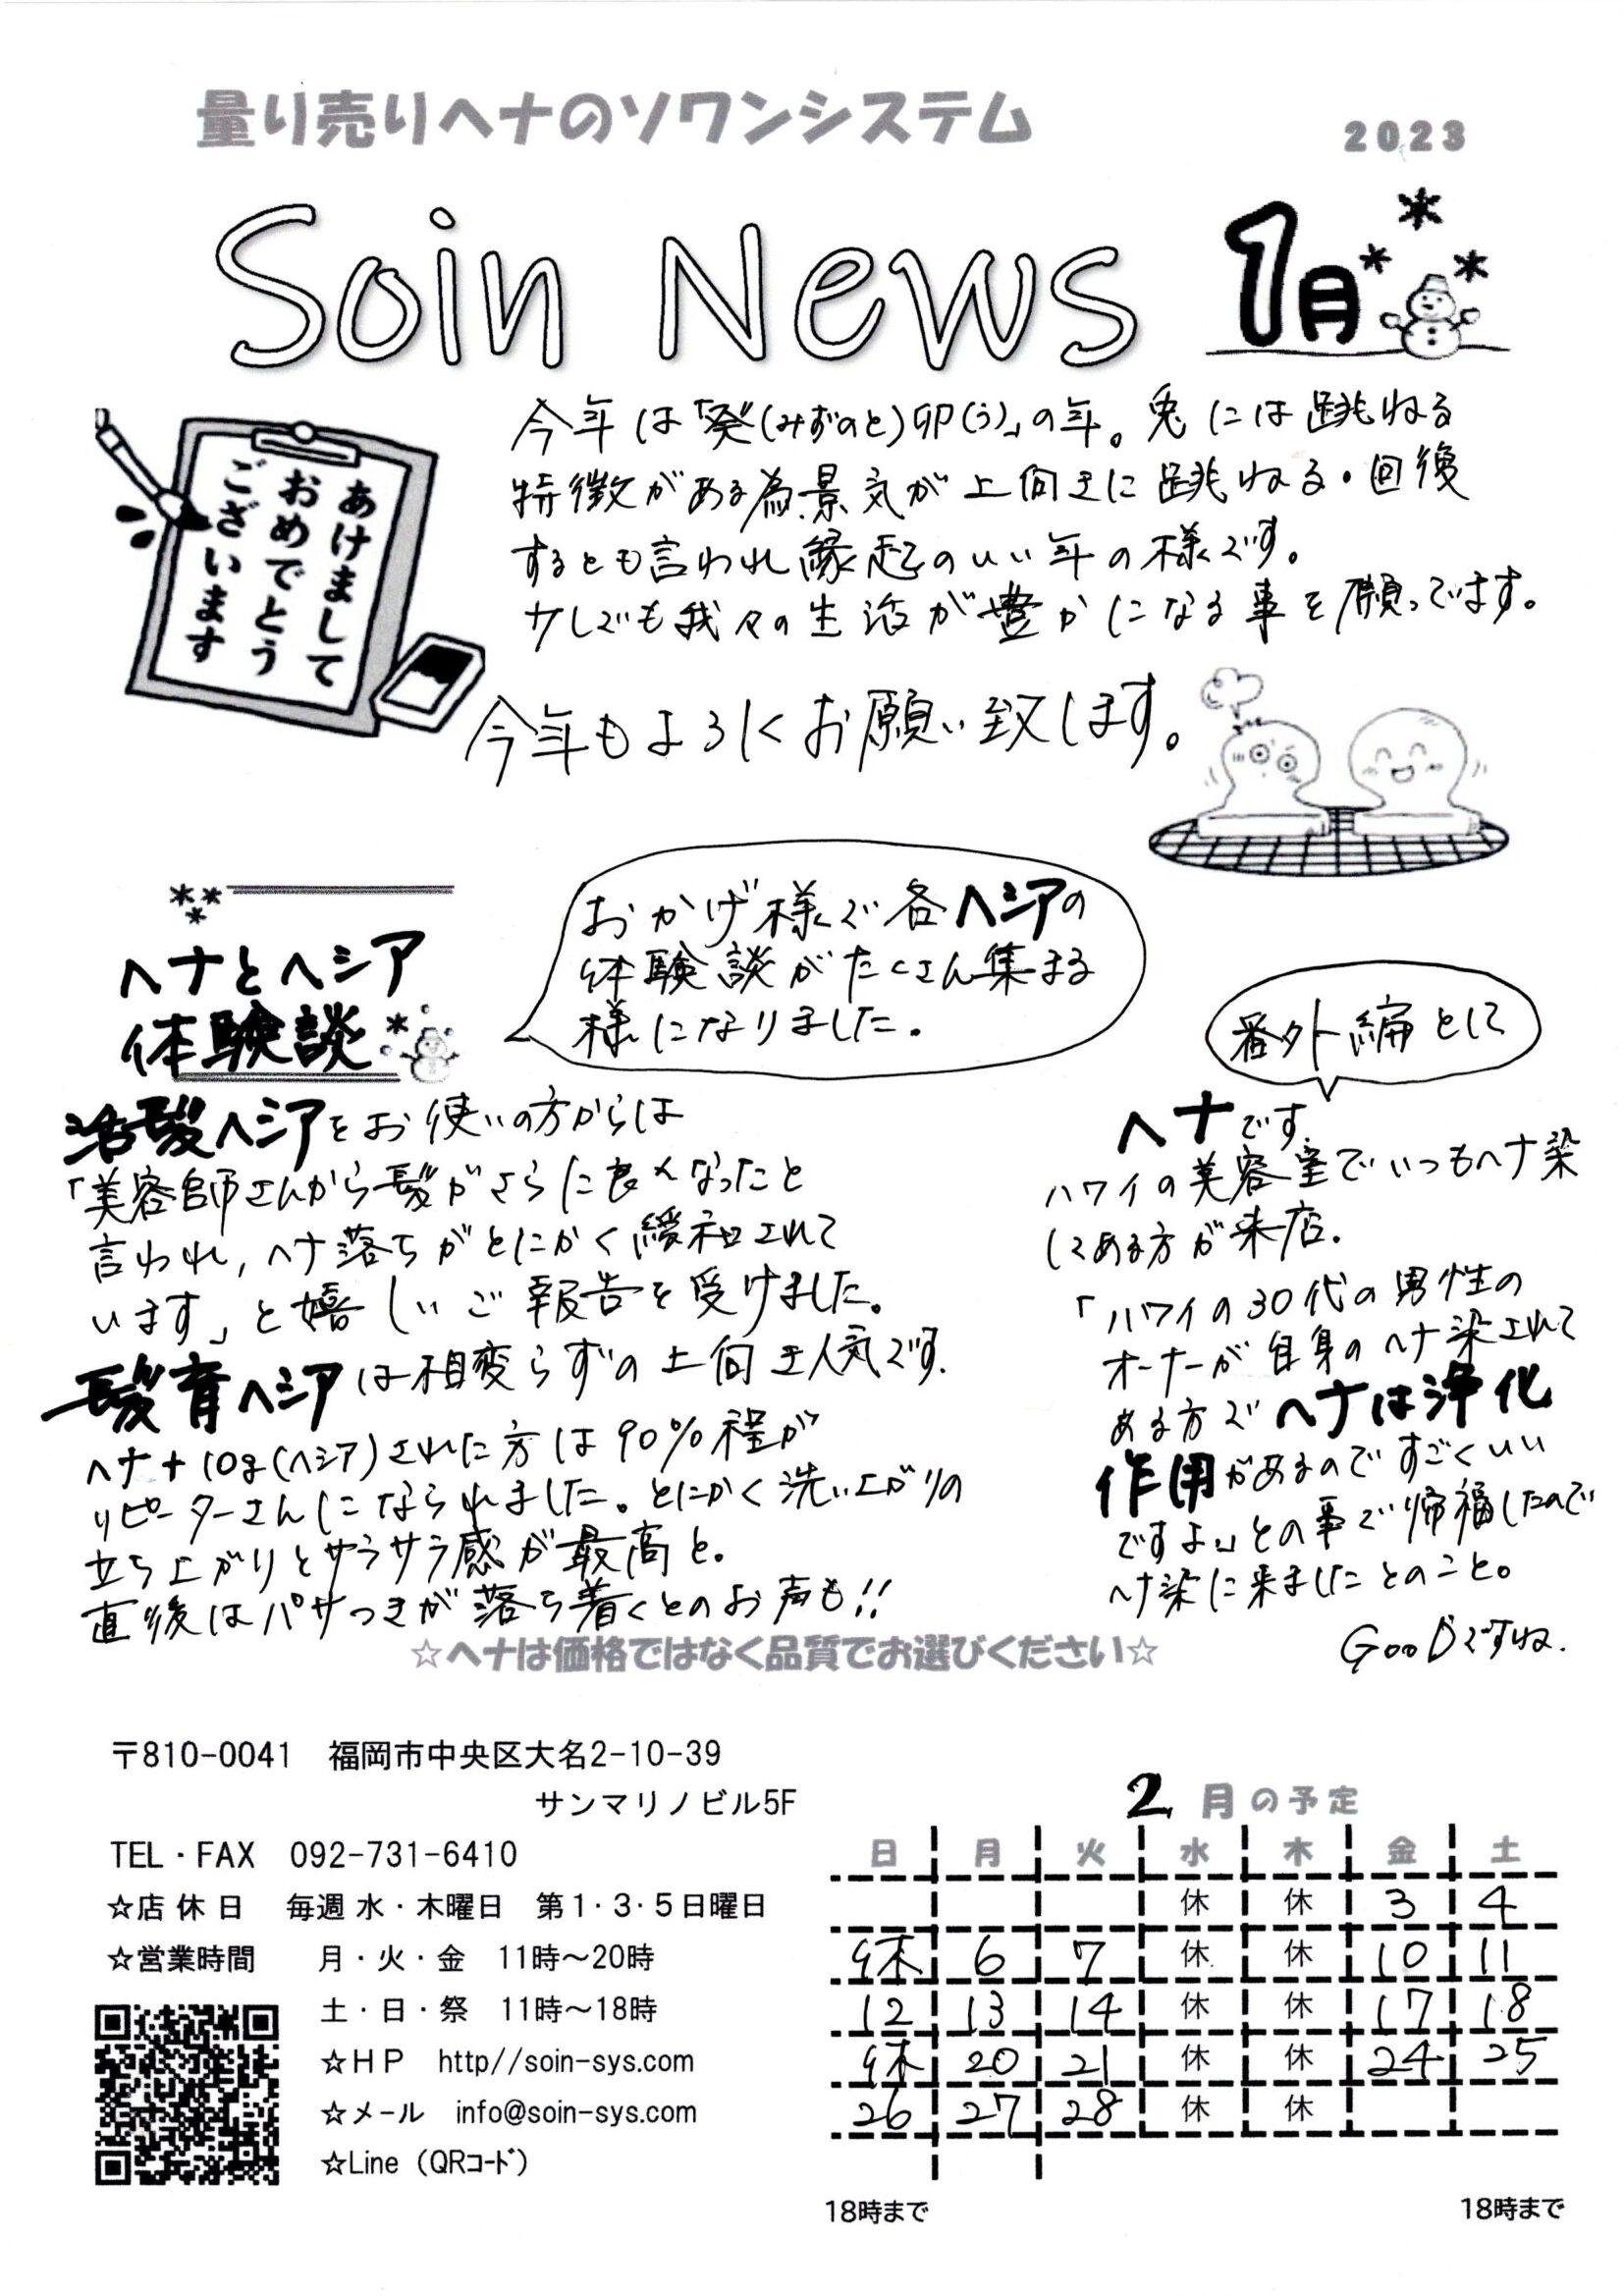 量り売りヘナのソワンシステム
2023
Soin News
1月
あけまして
おめでとう
ございます
今年は「癸(みずのと)卯(う)」の年。兎には跳ねる
特徴がある為景気が上向きに跳ねる・回復
するとも言われ縁起のいい年の様です。
少しでも我々の生活が豊かになる事を願ってます。
今年もよろしくお願い致します。
ヘナとヘシア
体験談
おかげ様で各ヘシアの
体験談がたくさん集まる
様になりました。
活髪ヘシアをお使いの方からは
「美容師さんから髪がさらに良くなったと
言われ,ヘナ落ちがとにかく緩和されて
います」と嬉しいご報告を受けました。
髪育ヘシアは相変らずの上向き人気です.
ヘナ+10g(ヘシア)された方は90%程が
リピーターさんになられました。とにかく洗い上がりの
立ち上がりとサラサラ感が最高と。
直後はパサつきが落ち着くとのお声も!!
番外編として
ヘナです.
ハワイの美容室でいつもヘナ染
してある方が来店.
「ハワイの30代の男性の
オーナーが自身のヘナ染されて
ある方でヘナは浄化
作用があるのですごくいい
ですよ」との事で帰福したので
ヘナ染に来ましたとのこと。
GOODですね.
☆ヘナは価格ではなく品質でお選びください☆
〒810-0041 福岡市中央区大名2-10-39
サンマリノビル5F
TEL・FAX 092-731-6410
☆店休日 毎週 水・木曜日 第1・3・5日曜日
☆営業時間 月・火・金 11時～20時
土・日・祭 11時～18時
☆HP http//soin-sys.com
☆メール info@soin-sys.com
☆Line (QRコード)
2月の予定
日 月 火 水 木 金 土
休 休 3 4
休 6 7 休 休 10 11
12 13 14 休 休 17 18
休 20 21 休 休 24 25
26 27 28 休 休
18時まで 18時まで